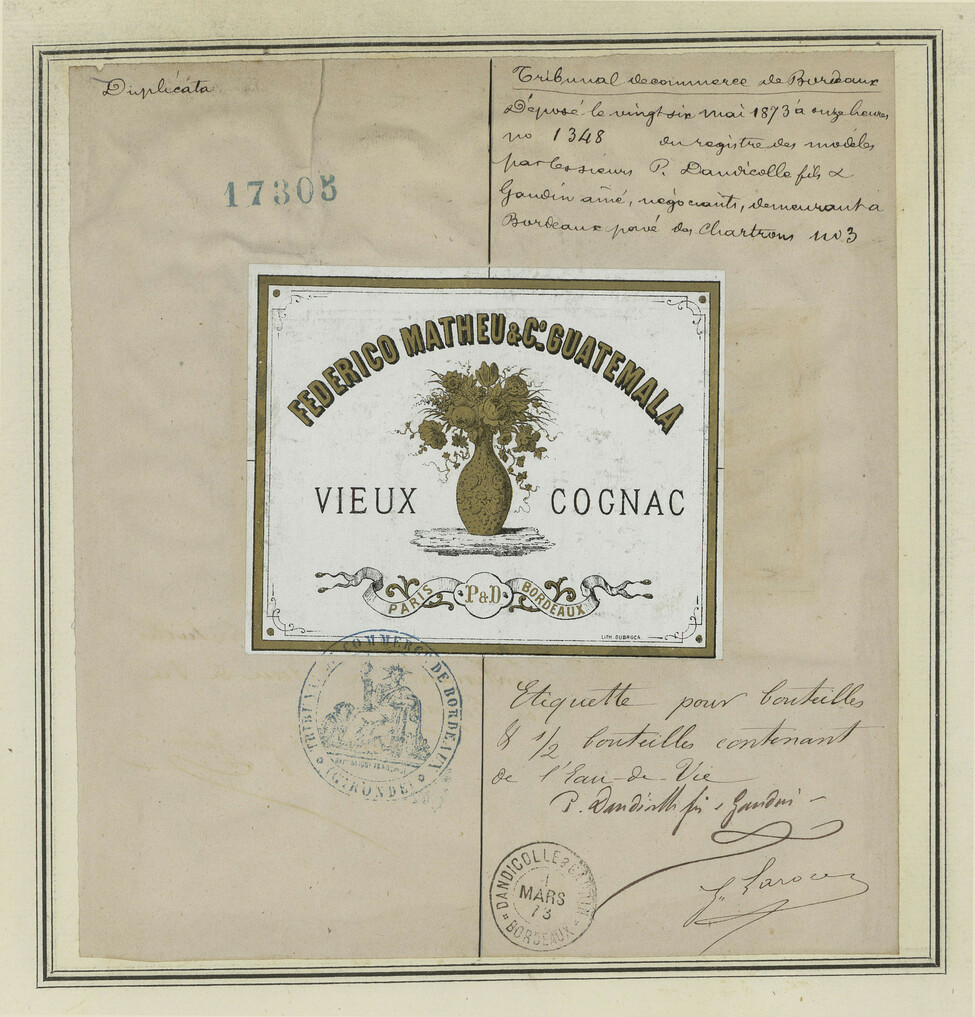 Duplicata
17305
Tribunal de commerce de Bordeaux
Déposé le vingt six mai 1873 à onze heures
no 1348 du registre des modèles
par les sieurs P. Dandicolle fils &
Gaudin ainé, négociants, demeurant à
Bordeaux pavé des Chartrons no 3
FEDERICO MATHEU & Co. GUATEMALA
VIEUX COGNAC
PARIS P&D BORDEAUX
LITH. DUBROCA
TRIBUNAL DE COMMERCE DE BORDEAUX
(GIRONDE)
Etiquette pour bouteilles
& 1/2 bouteilles contenant
de l'Eau-de-Vie
P. Dandicolle fils & Gaudin
DANDICOLLE & GAUDIN
1
MARS
73
BORDEAUX